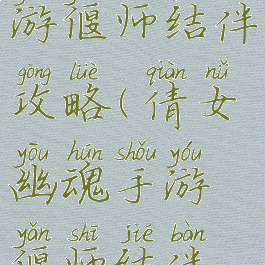 游偃师结伴
gōng lüè qiàn nǚ
攻略(倩女
yōu hún shǒu yóu
幽魂手游
yǎn shī jié bàn
偃师结伴